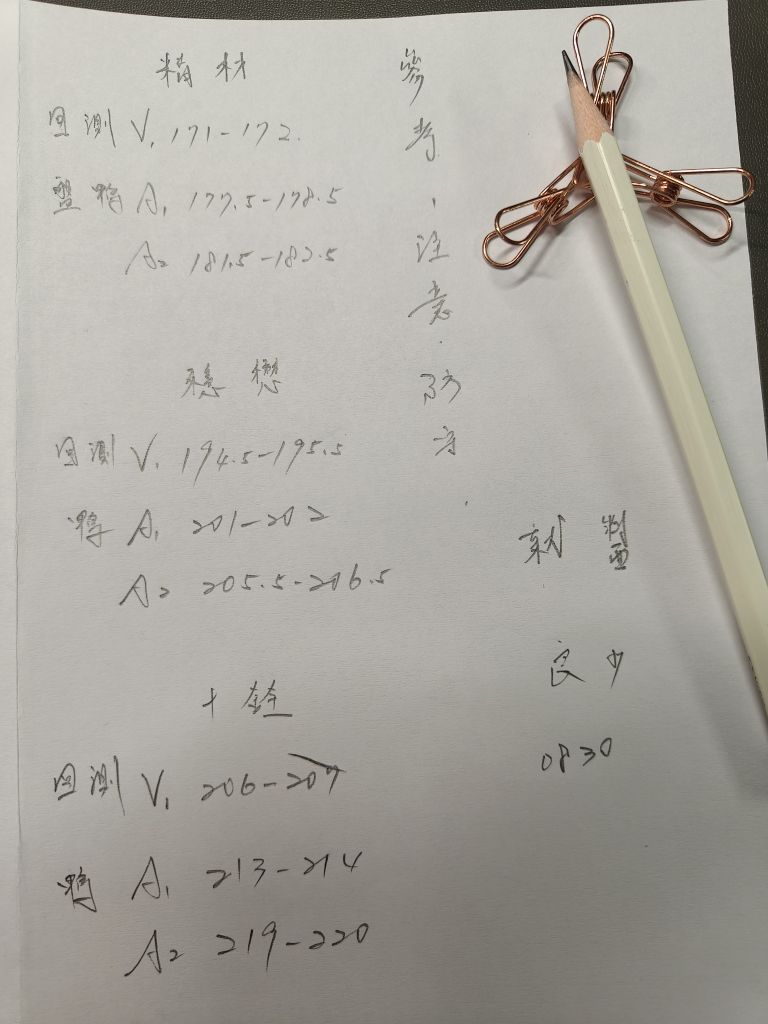 精材
回測 V1 171-172.
盤鴨 A1 177.5-178.5
A2 181.5-182.5
穩懋
回測 V1 194.5-195.5
鴨 A1 201-202
A2 205.5-206.5
十銓
回測 V1 206-207
鴨 A1 213-214
A2 219-220
參考,注意.防守
就盤
良少
0830